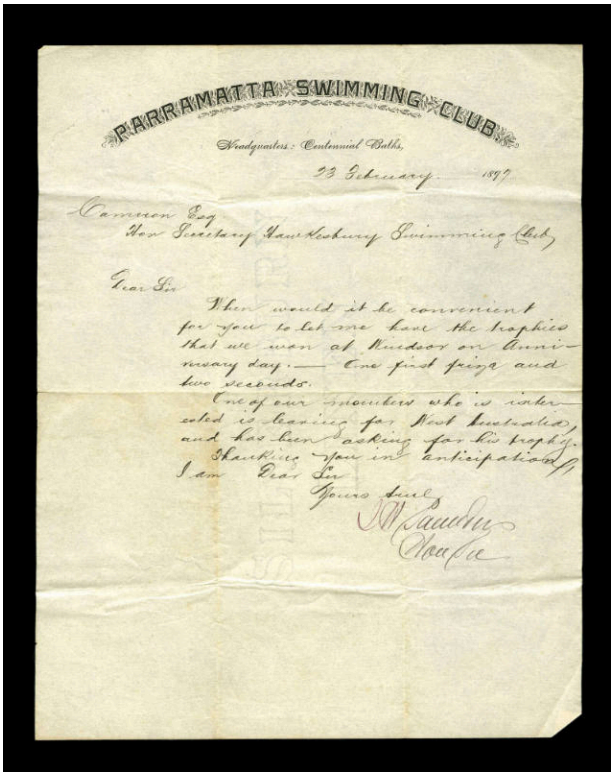 PARRAMATTA SWIMMING CLUB.
Headquarters: Centennial Baths,
23 February. 1897
Cameron Esq
Hon Secretary Hawkesbury Swimming Club,
Dear Sir
When would it be convenient
for you to let me have the trophies
that we won at Windsor on Anni-
versary day. — One first prize and
two seconds.
One of our members who is inter-
ested is leaving for West Australia,
and has been asking for his trophy.
Thanking you in anticipation
I am Dear Sir
Yours truly
Hon Sec